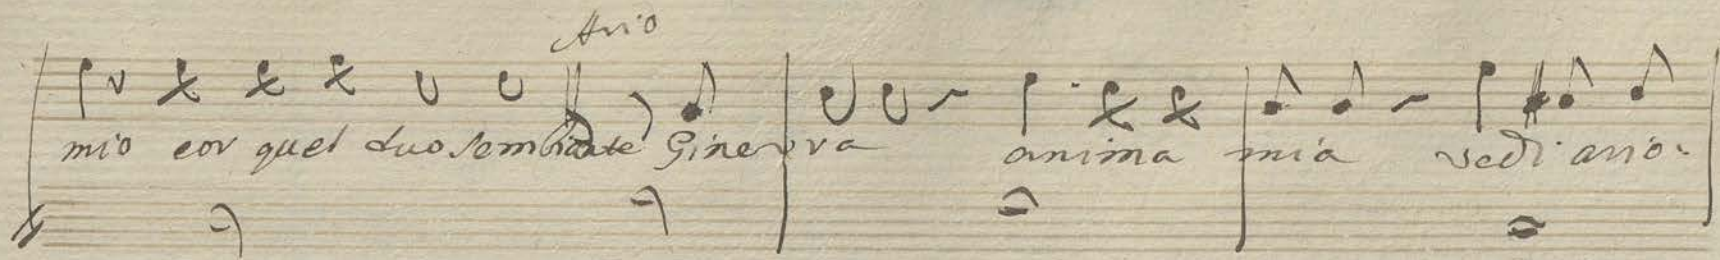 Ario
mio cor quel tuo sembiante Ginevra anima mia vedi ario-